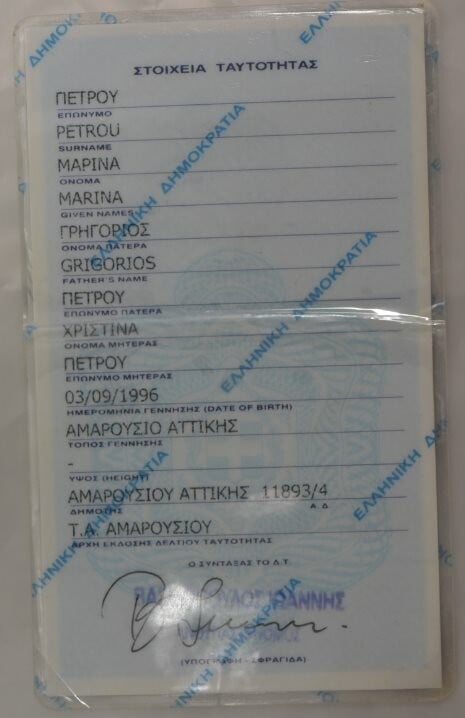 ΣΤΟΙΧΕΙΑ ΤΑΥΤΟΤΗΤΑΣ
ΠΕΤΡΟΥ
ΕΠΩΝΥΜΟ
PETROU
SURNAME
ΜΑΡΙΝΑ
ΟΝΟΜΑ
MARINA
GIVEN NAMES
ΓΡΗΓΟΡΙΟΣ
ΟΝΟΜΑ ΠΑΤΕΡΑ
GRIGORIOS
FATHER'S NAME
ΠΕΤΡΟΥ
ΕΠΩΝΥΜΟ ΠΑΤΕΡΑ
ΧΡΙΣΤΙΝΑ
ΟΝΟΜΑ ΜΗΤΕΡΑΣ
ΠΕΤΡΟΥ
ΕΠΩΝΥΜΟ ΜΗΤΕΡΑΣ
03/09/1996
ΗΜΕΡΟΜΗΝΙΑ ΓΕΝΝΗΣΗΣ (DATE OF BIRTH)
ΑΜΑΡΟΥΣΙΟ ΑΤΤΙΚΗΣ
ΤΟΠΟΣ ΓΕΝΝΗΣΗΣ
-
ΥΨΟΣ (HEIGHT)
ΑΜΑΡΟΥΣΙΟΥ ΑΤΤΙΚΗΣ 11893/4
ΔΗΜΟΤΗΣ Α.Δ.
Τ.Α. ΑΜΑΡΟΥΣΙΟΥ
ΑΡΧΗ ΕΚΔΟΣΗΣ ΔΕΛΤΙΟΥ ΤΑΥΤΟΤΗΤΑΣ
Ο ΣΥΝΤΑΞΑΣ ΤΟ Δ.Τ.
ΙΩΑΝΝΗΣ
(ΥΠΟΓΡΑΦΗ - ΣΦΡΑΓΙΔΑ)
ΕΛΛΗΝΙΚΗ ΔΗΜΟΚΡΑΤΙΑ
ΕΛΛΗΝΙΚΗ ΔΗΜΟΚΡΑΤΙΑ